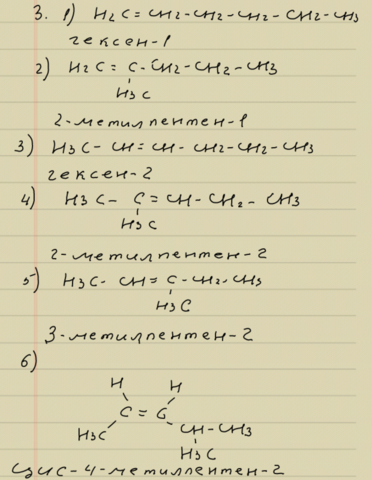 3. 1) H2C=CH2-CH2-CH2-CH2-CH3
гексен-1
2) H2C=C-CH2-CH2-CH3
H3C
2-метилпентен-1
3) H3C-CH=CH-CH2-CH2-CH3
гексен-2
4) H3C-C=CH-CH2-CH3
H3C
2-метилпентен-2
5) H3C-CH=C-CH2-CH3
H3C
3-метилпентен-2
6)
H H
C=C
H3C CH-CH3
H3C
цис-4-метилпентен-2